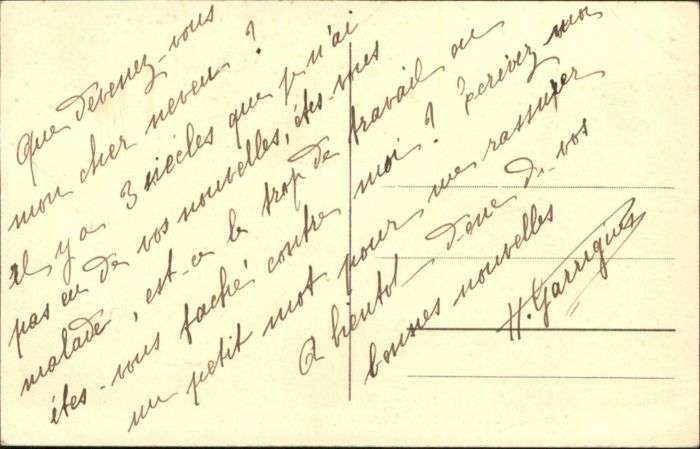 Que devenez-vous
mon cher neveu ?
il y a 3 siècles que je n'ai
pas eu de vos nouvelles, êtes-vous
malade, est-ce le trop de travail ou
êtes-vous faché contre moi ? Ecrivez moi
un petit mot pour me rassurer
A bientot donc de vos
bonnes nouvelles
H. Garrigues